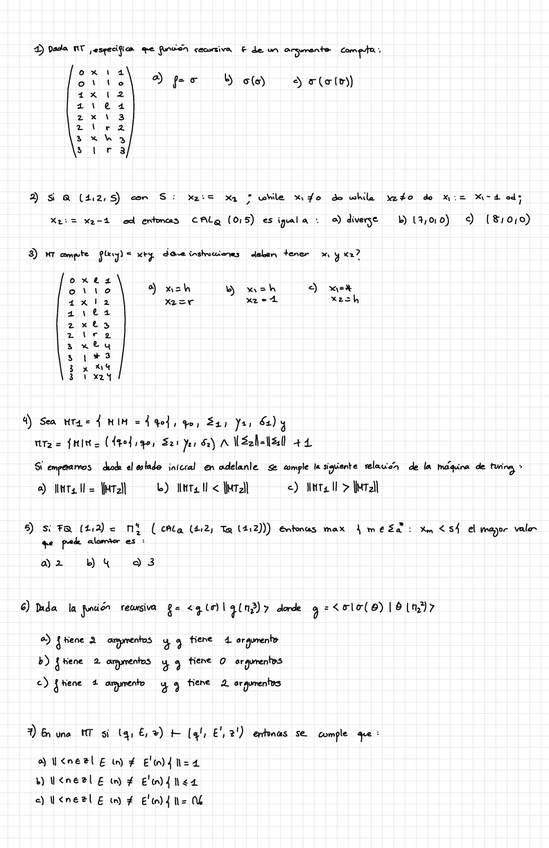 1) Dada MT, especifica que función recursiva f de un argumento computa:
0 x l 1
0 l l 0
1 x l 2
1 l l 1
2 x l 3
2 l r 2
3 x h 3
3 l r 3
a) f = σ b) σ(σ) c) σ(σ(σ))
2) Si Q (1,2,S) con S: x2:= x1 ; while x1≠0 do while x2≠0 do x1:= x1-1 od;
x2:= x2-1 od entonces CALQ (0,5) es igual a: a) diverge b) (7,0,0) c) (8,0,0)
3) MT compute f(x,y) = x+y que instrucciones deben tener x1 y x2?
0 x l 1
0 l l 0
1 x l 2
1 l l 1
2 x l 3
2 l r 2
3 x l 4
3 l * 3
3 x x1 4
3 l x2 4
a) x1=h
x2=r
b) x1=h
x2=1
c) x1=*
x2=h
4) Sea MT1 = { M|M = ({q0}, q0, Σ1, γ1, δ1) y
MT2 = {M|M = ({q0}, q0, Σ2, γ2, δ2) ∧ ||Σ2||=||Σ1|| + 1
Si empezamos desde el estado inicial en adelante se cumple la siguiente relación de la máquina de turing:
a) ||MT1|| = ||MT2|| b) ||MT1|| < ||MT2|| c) ||MT1|| > ||MT2||
5) Si FQ (1,2) = Π ( CALQ (1,2, TQ (1,2))) entonces max { m ∈ : xm < s} el mayor valor
que puede alcanzar es:
a) 2 b) 4 c) 3
6) Dada la función recursiva f = <g(σ) | g(Π)> donde g = <σ|σ(θ) | θ(Π)>
a) f tiene 2 argumentos y g tiene 1 argumento
b) f tiene 2 argumentos y g tiene 0 argumentos
c) f tiene 1 argumento y g tiene 2 argumentos
7) En una MT si (q, E, z) ⊢ (q', E', z') entonces se cumple que:
a) || {n∈z| E(n) ≠ E'(n)} || = 1
b) || {n∈z| E(n) ≠ E'(n)} || ≤ 1
c) || {n∈z| E(n) ≠ E'(n)} || =